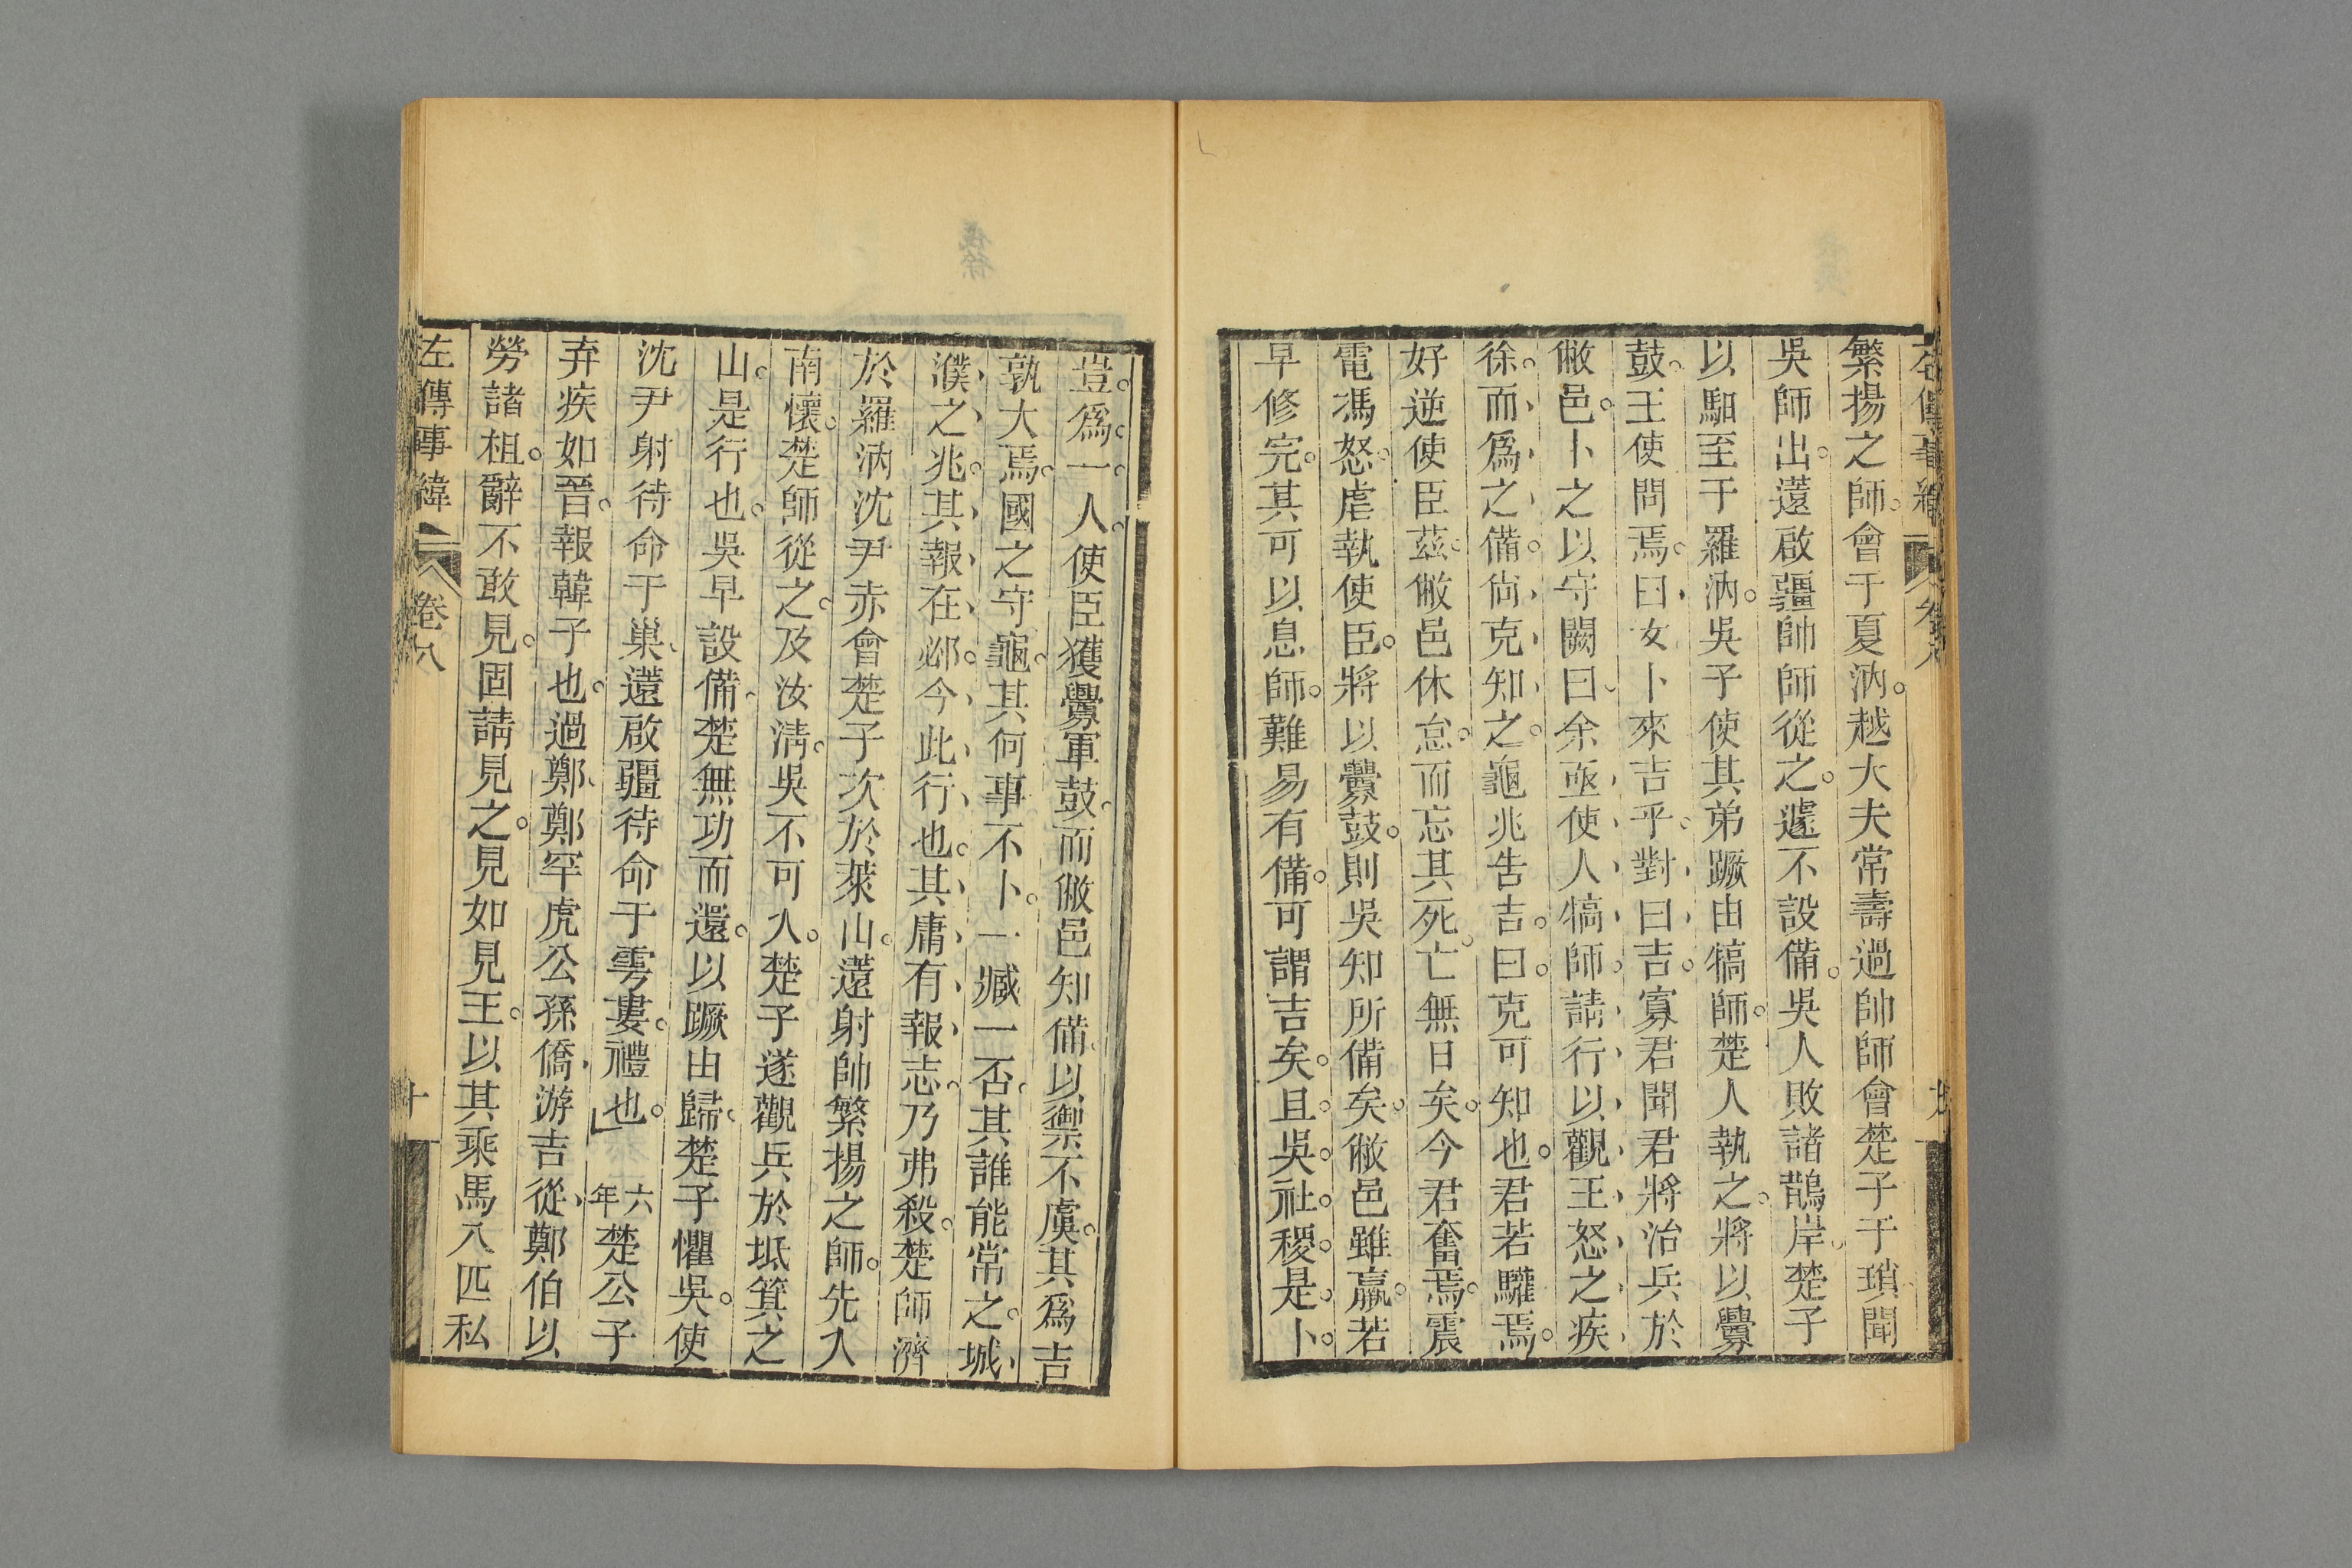 繁揚之師會于夏汭越大夫常壽過帥師會楚子于瑣聞
吳師出薳啟疆帥師從之遽不設備吳人敗諸鵲岸楚子
以馹至于羅汭吳子使其弟蹶由犒師楚人執之將以釁
鼓王使問焉曰女卜來吉乎對曰吉寡君聞君將治兵於
敝邑卜之以守闕曰余亟使人犒師請行以觀王怒之疾
徐而爲之備尙克知之龜兆告吉曰克可知也君若驩焉
好逆使臣茲敝邑休怠而忘其死亡無日矣今君奮焉震
電馮怒虐執使臣將以釁鼓則吳知所備矣敝邑雖羸若
早修完其可以息師難易有備可謂吉矣且吳社稷是卜
豈爲一人使臣獲釁軍鼓而敝邑知備以禦不虞其爲吉
孰大焉國之守龜其何事不卜一臧一否其誰能常之城
濮之兆其報在邲今此行也其庸有報志乃弗殺楚師濟
於羅汭沈尹赤會楚子次於萊山薳射帥繁揚之師先入
南懷楚師從之及汝淸吳不可入楚子遂觀兵於坻箕之
山是行也吳早設備楚無功而還以蹶由歸楚子懼吳使
沈尹射待命于巢薳啟疆待命于雩婁禮也 六年楚公子
弃疾如晉報韓子也過鄭鄭罕虎公孫僑游吉從鄭伯以
勞諸柤辭不敢見固請見之見如見王以其乘馬八匹私
左傳事緯 卷八 十